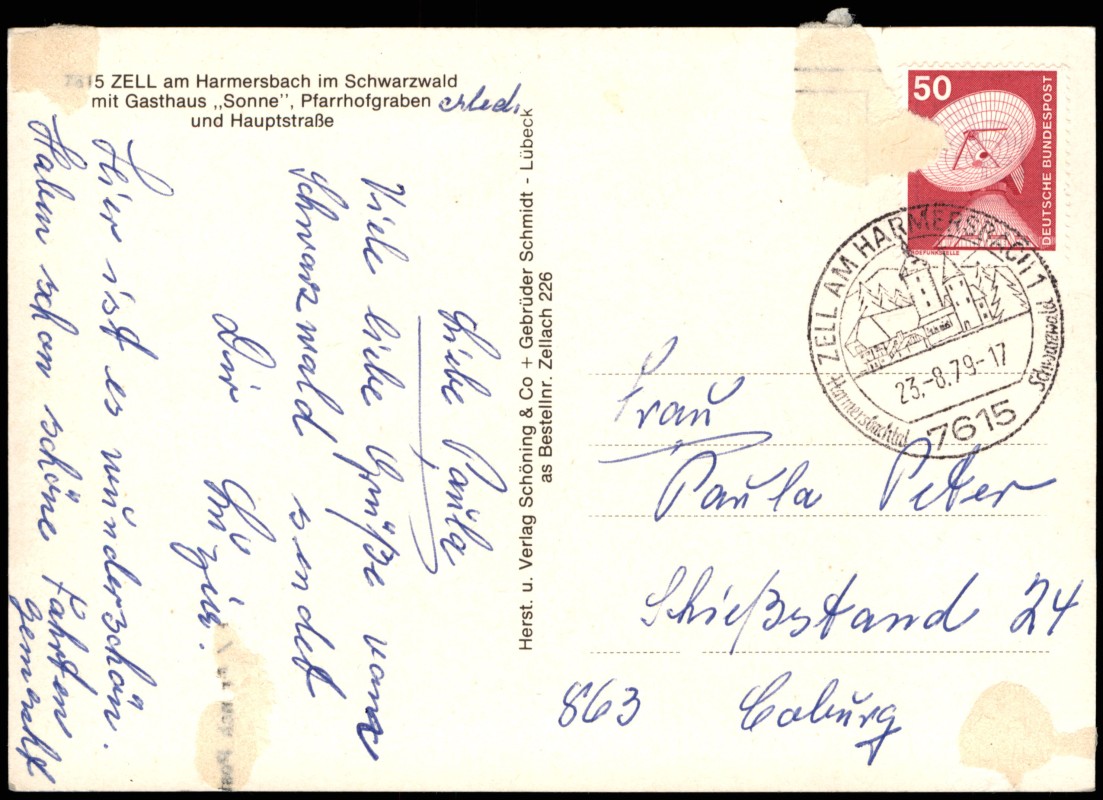 7615 ZELL am Harmersbach im Schwarzwald
mit Gasthaus „Sonne”, Pfarrhofgraben
und Hauptstraße
erled.
Liebe Paula
Viele liebe Grüße vom
Schwarzwald sendet
Dir
Hier ist es wunderschön.
Haben schon schöne Fahrten
gemacht
Herst. u. Verlag Schöning & Co + Gebrüder Schmidt - Lübeck
as Bestellnr. Zellach 226
50
DEUTSCHE BUNDESPOST
ERDEFUNKSTELLE
ZELL AM HARMERSBACH 1
Schwarzwald
Harmersbachtal
23.-8.79-17
7615
Frau
Paula Peter
Schießstand 24
863 Coburg